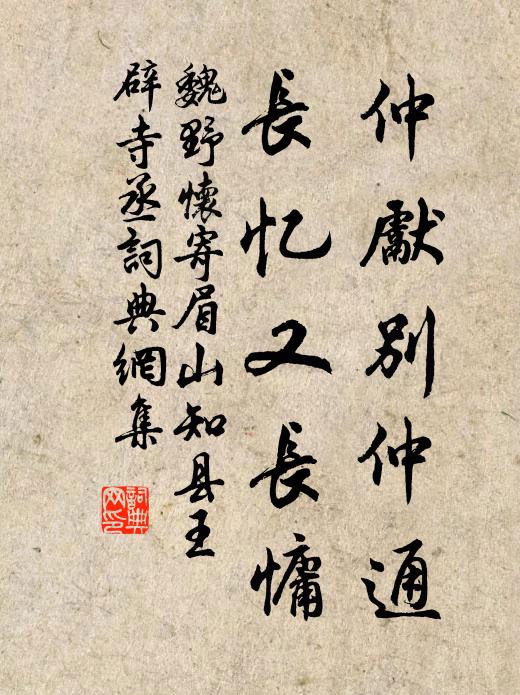 仲獻別仲通
長忆又長慵
魏野懷寄眉山知县王
辟寺丞詞典網集
詞典网印